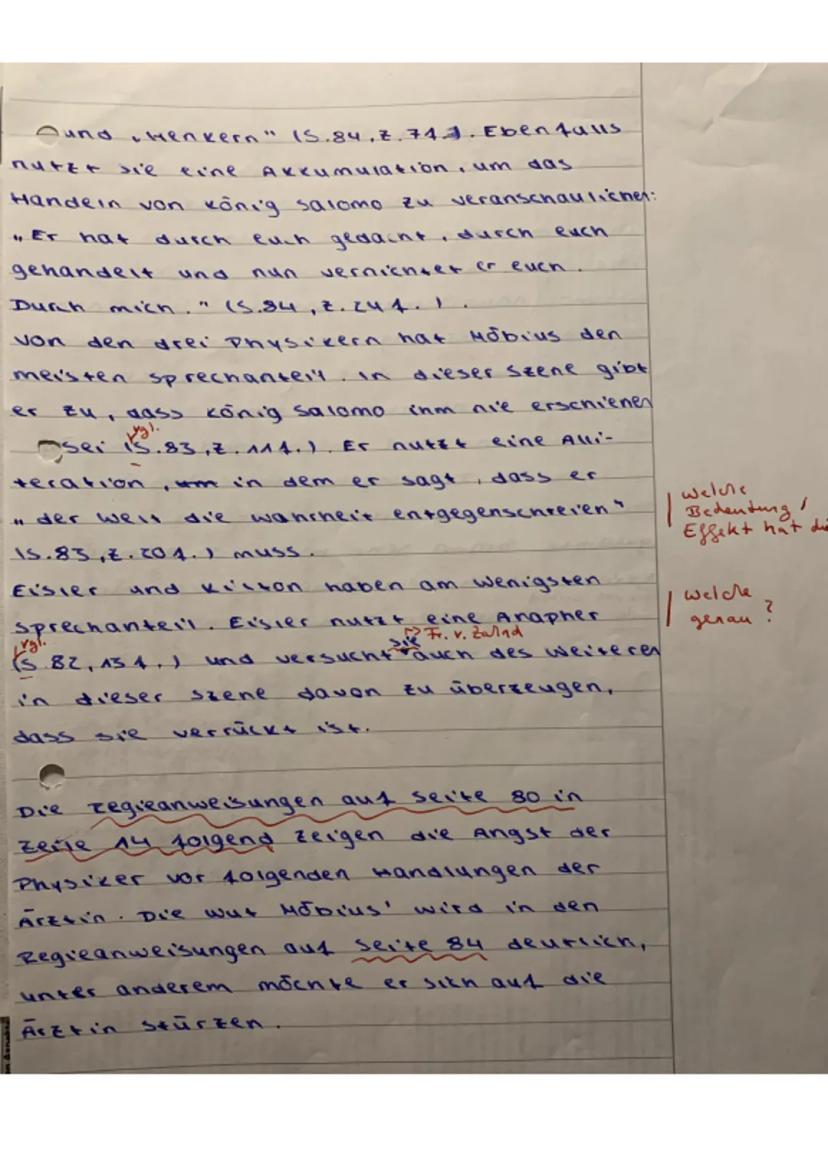 und „Henkern" (S.84,Z.7f.). Ebenfalls
nutzt sie eine Akkumulation, um das
Handeln von König Salomo zu veranschaulichen:
„Er hat durch euch gedacht, durch euch
gehandelt und nun vernichtet er euch.
Durch mich." (S.84, Z.24f.).
Von den drei Physikern hat Möbius den
meisten Sprechanteil. In dieser Szene gibt
er zu, dass König Salomo ihm nie erschienen
vgl.
sei (S.83,Z.11f.). Er nutzt eine Alli-
teration, um in dem er sagt, dass er
„der Welt die Wahrheit entgegenschreien"
(S.83,Z.20f.) muss.
welche
Bedeutung/
Effekt hat di
Eisler und Kilton haben am wenigsten
Sprechanteil. Eisler nutzt eine Anapher
welche
genau?
vgl. sie → Fr. v. Zahnd
(S.82,15f.) und versucht auch des Weiteren
in dieser Szene davon zu überzeugen,
dass sie verrückt ist.
Die Regieanweisungen auf Seite 80 in
Zeile 14 folgend zeigen die Angst der
Physiker vor folgenden Handlungen der
Ärztin. Die Wut Möbius' wird in den
Regieanweisungen auf Seite 84 deutlich,
unter anderem möchte er sich auf die
Ärztin stürzen.